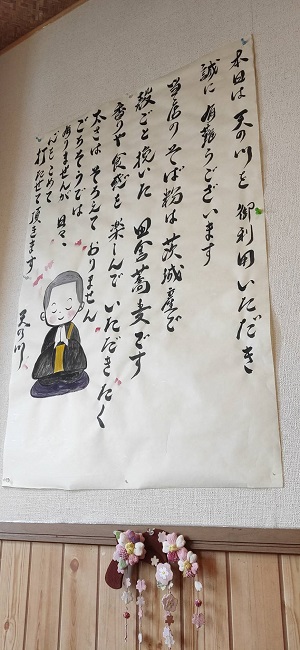 本日は 天の川を 御利用いただき
誠に有難うございます
当店のそば粉は茨城産で
殻ごと挽いた 田舎蕎麦です
香りや食感を楽しんでいただきたく
太さは そろえて おりません
ごちそうでは
ありませんが 日々、
心をこめて
打たせて頂きます
天の川